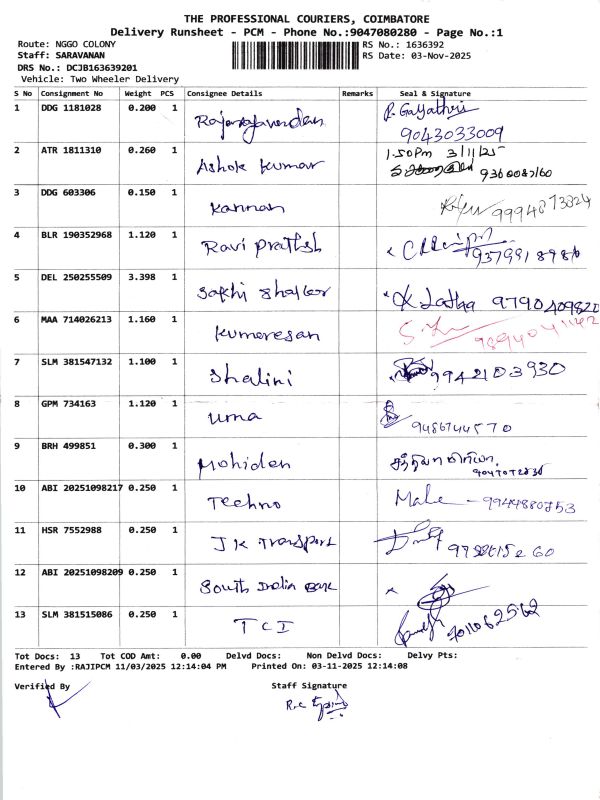 THE PROFESSIONAL COURIERS, COIMBATORE
Delivery Runsheet - PCM - Phone No.:9047080280 - Page No.:1
Route: NGGO COLONY RS No.: 1636392
Staff: SARAVANAN RS Date: 03-Nov-2025
DRS No.: DCJB163639201
Vehicle: Two Wheeler Delivery
S No Consignment No Weight PCS Consignee Details Remarks Seal & Signature
1 DDG 1181028 0.200 1 R. Gayathri
9043033009
2 ATR 1811310 0.260 1 Ashok Kumar 1.50Pm 3/11/25
3 DDG 603306 0.150 1 Kannan 9994873824
4 BLR 190352968 1.120 1 Ravi Prathsh
5 DEL 250255509 3.398 1 Sakthi Shaker Latha 9790409820
6 MAA 714026213 1.160 1 Kumaresan
7 SLM 381547132 1.100 1 Shalini 9942103930
8 GPM 734163 1.120 1 Uma
9486744570
9 BRH 499851 0.300 1 Mohiden
10 ABI 20251098217 0.250 1 Techno
11 HSR 7552988 0.250 1 JK Transport
12 ABI 20251098209 0.250 1 South India Bank
13 SLM 381515086 0.250 1 TCI 7011062562
Tot Docs: 13 Tot COD Amt: 0.00 Delvd Docs: Non Delvd Docs: Delvy Pts:
Entered By :RAJIPCM 11/03/2025 12:14:04 PM Printed On: 03-11-2025 12:14:08
Verified By Staff Signature